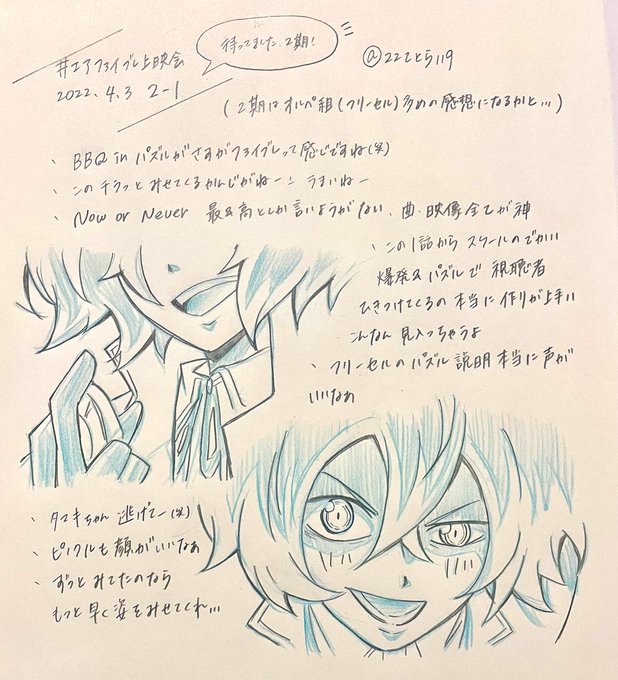 #エアファイブレ上映会
待ってました、2期!
@22てとら119
2022.4.3 2-1
(2期はオルペ組(フリーセル)多めの感想になるかと...)
、BBQ in パズルがさすがファイブレって感じですね(笑)
、このチラっとみせてくるかんじがねー! うまいねー
、Now or Never 最&高としか言いようがない、曲、映像全てが神
、この1話から スケールのでかい
爆発&パズルで 視聴者
ひきつけてくるの 本当に作りが上手い
こんなん 見入っちゃうよ
、フリーセルの パズル 説明 本当に声が
いいなぁ
、タマキちゃん 逃げてー(笑)
、ピノクルも顔がいいなぁ
、ずっとみてたのなら
もっと早く姿をみせてくれ...